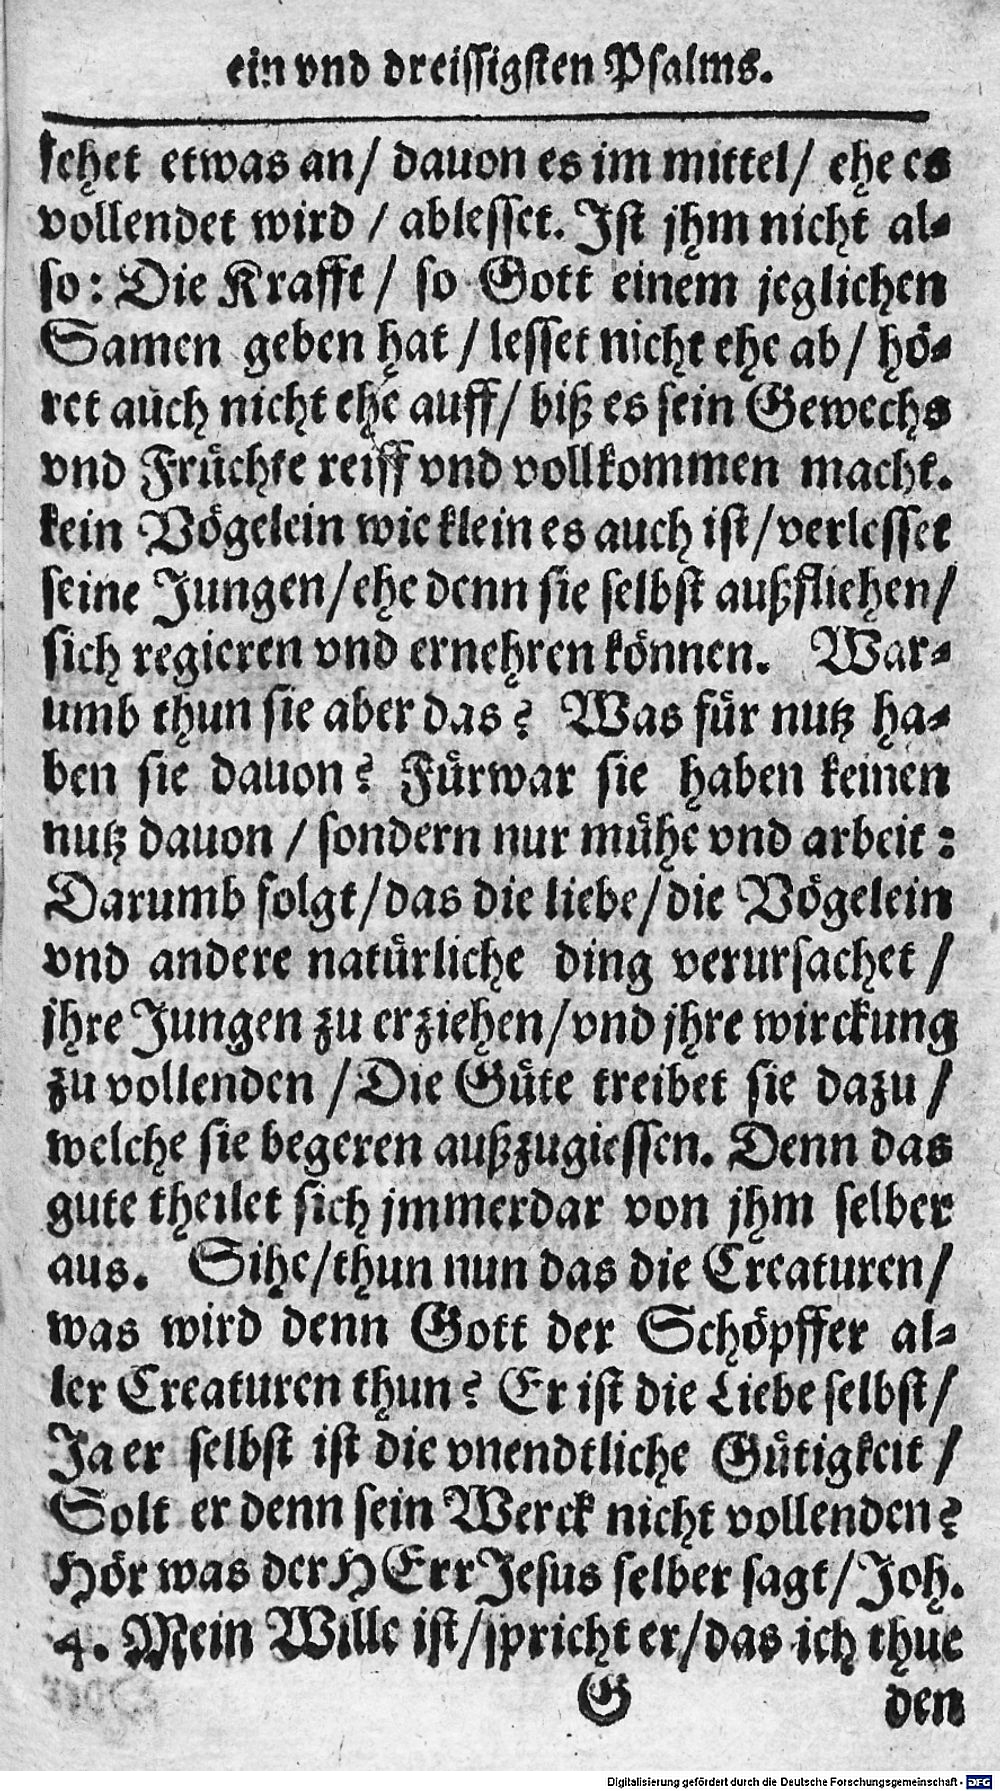 ein vnd dreissigsten Psalms.
sehet etwas an/ dauon es im mittel/ ehe es
vollendet wird / ablesset. Ist jhm nicht al-
so: Die Krafft / so Gott einem jeglichen
Samen geben hat / lesset nicht ehe ab/ hö-
ret auch nicht ehe auff/ biß es sein Gewechs
vnd Früchte reiff vnd vollkommen macht.
kein Vögelein wie klein es auch ist/ verlesset
seine Jungen/ ehe denn sie selbst außfliehen/
sich regieren vnd ernehren können. War-
umb thun sie aber das? Was für nutz ha-
ben sie dauon? Fürwar sie haben keinen
nutz dauon / sondern nur mühe vnd arbeit:
Darumb folgt/ das die liebe/ die Vögelein
vnd andere natürliche ding verursachet /
jhre Jungen zu erziehen/ vnd jhre wirckung
zu vollenden / Die Güte treibet sie dazu /
welche sie begeren außzugiessen. Denn das
gute theilet sich jmmerdar von jhm selber
aus. Sihe/ thun nun das die Creaturen/
was wird denn Gott der Schöpffer al-
ler Creaturen thun? Er ist die Liebe selbst/
Ja er selbst ist die vnendtliche Gütigkeit /
Solt er denn sein Werck nicht vollenden?
Hör was der HErr Jesus selber sagt/ Joh.
4. Mein Wille ist/ spricht er/ das ich thue
G den
Digitalisierung gefördert durch die Deutsche Forschungsgemeinschaft - DFG